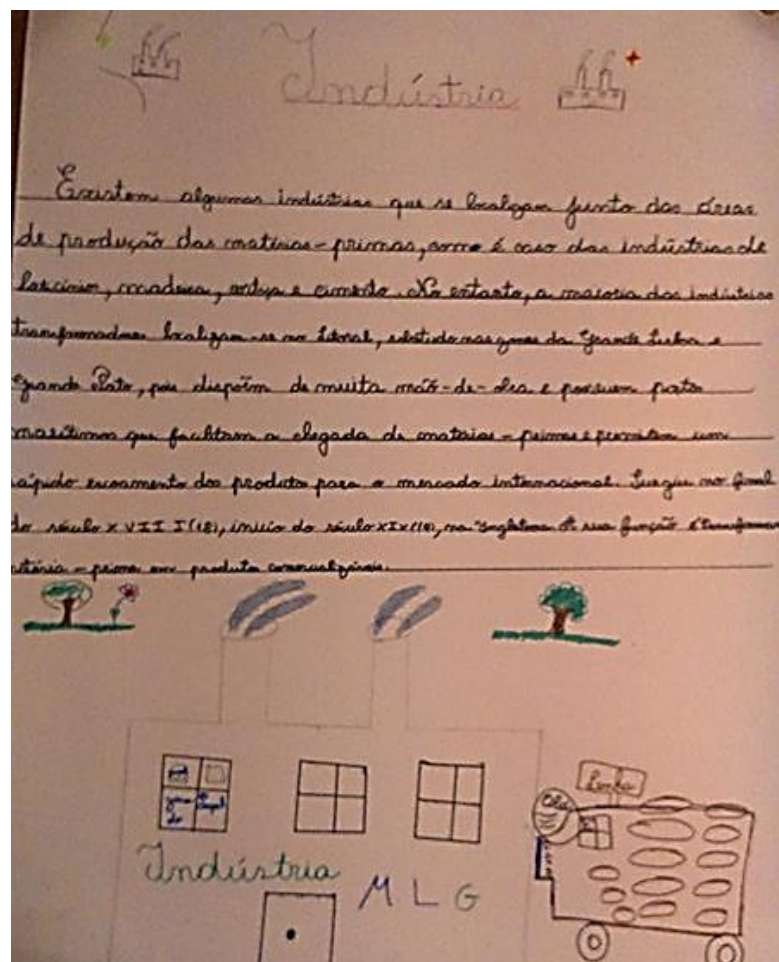 Indústria
Existem algumas indústrias que se localizam junto das áreas
de produção das matérias-primas, como é caso das indústrias de
lacticínios, madeira, cortiça e cimento. No entanto, a maioria das indústrias
transformadoras localizam-se no Litoral, sobretudo nas zonas da Grande Lisboa e
Grande Porto, pois dispõem de muita mão-de-obra e possuem portos
marítimos que facilitam a chegada de matérias-primas e permitem um
rápido escoamento dos produtos para o mercado internacional. Surgiu no final
do século XVIII (18), início do século XIX (19), na Inglaterra. A sua função é transformar
matéria-prima em produtos comercializáveis.
Lenha
Olá
Indústria M L G